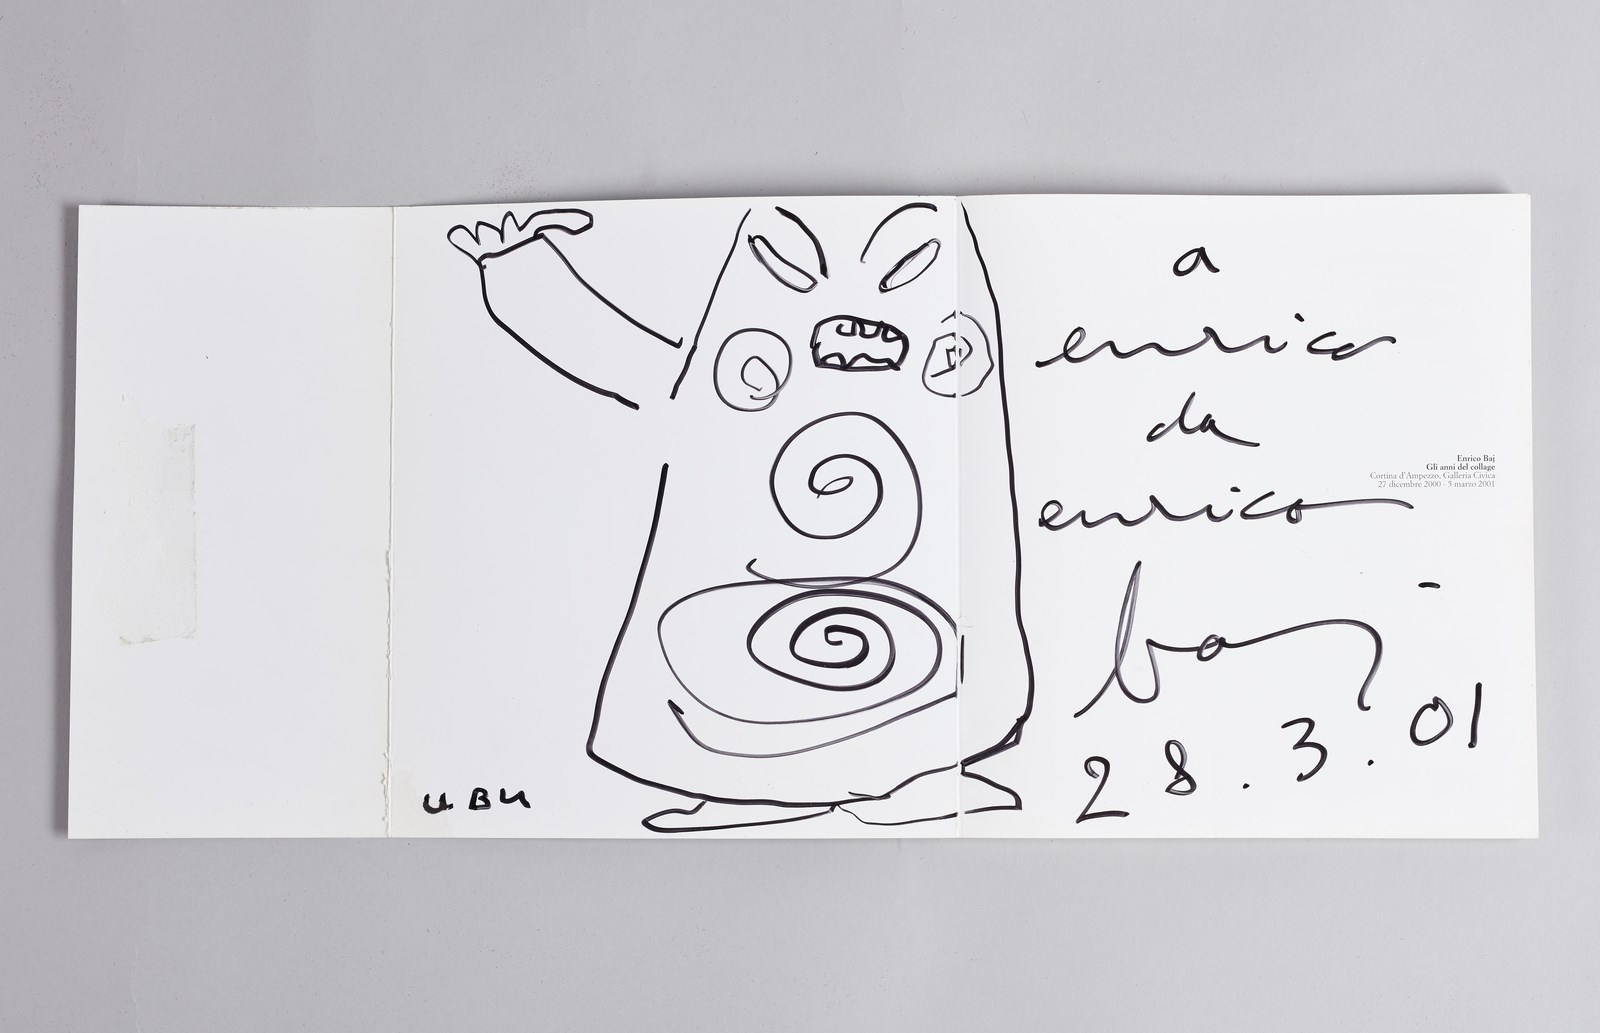 UBU
a
enrico
da
enrico
baj
28.3.01
Enrico Baj
Gli anni del collage
Cortina d'Ampezzo, Galleria Civica
27 dicembre 2000 - 5 marzo 2001